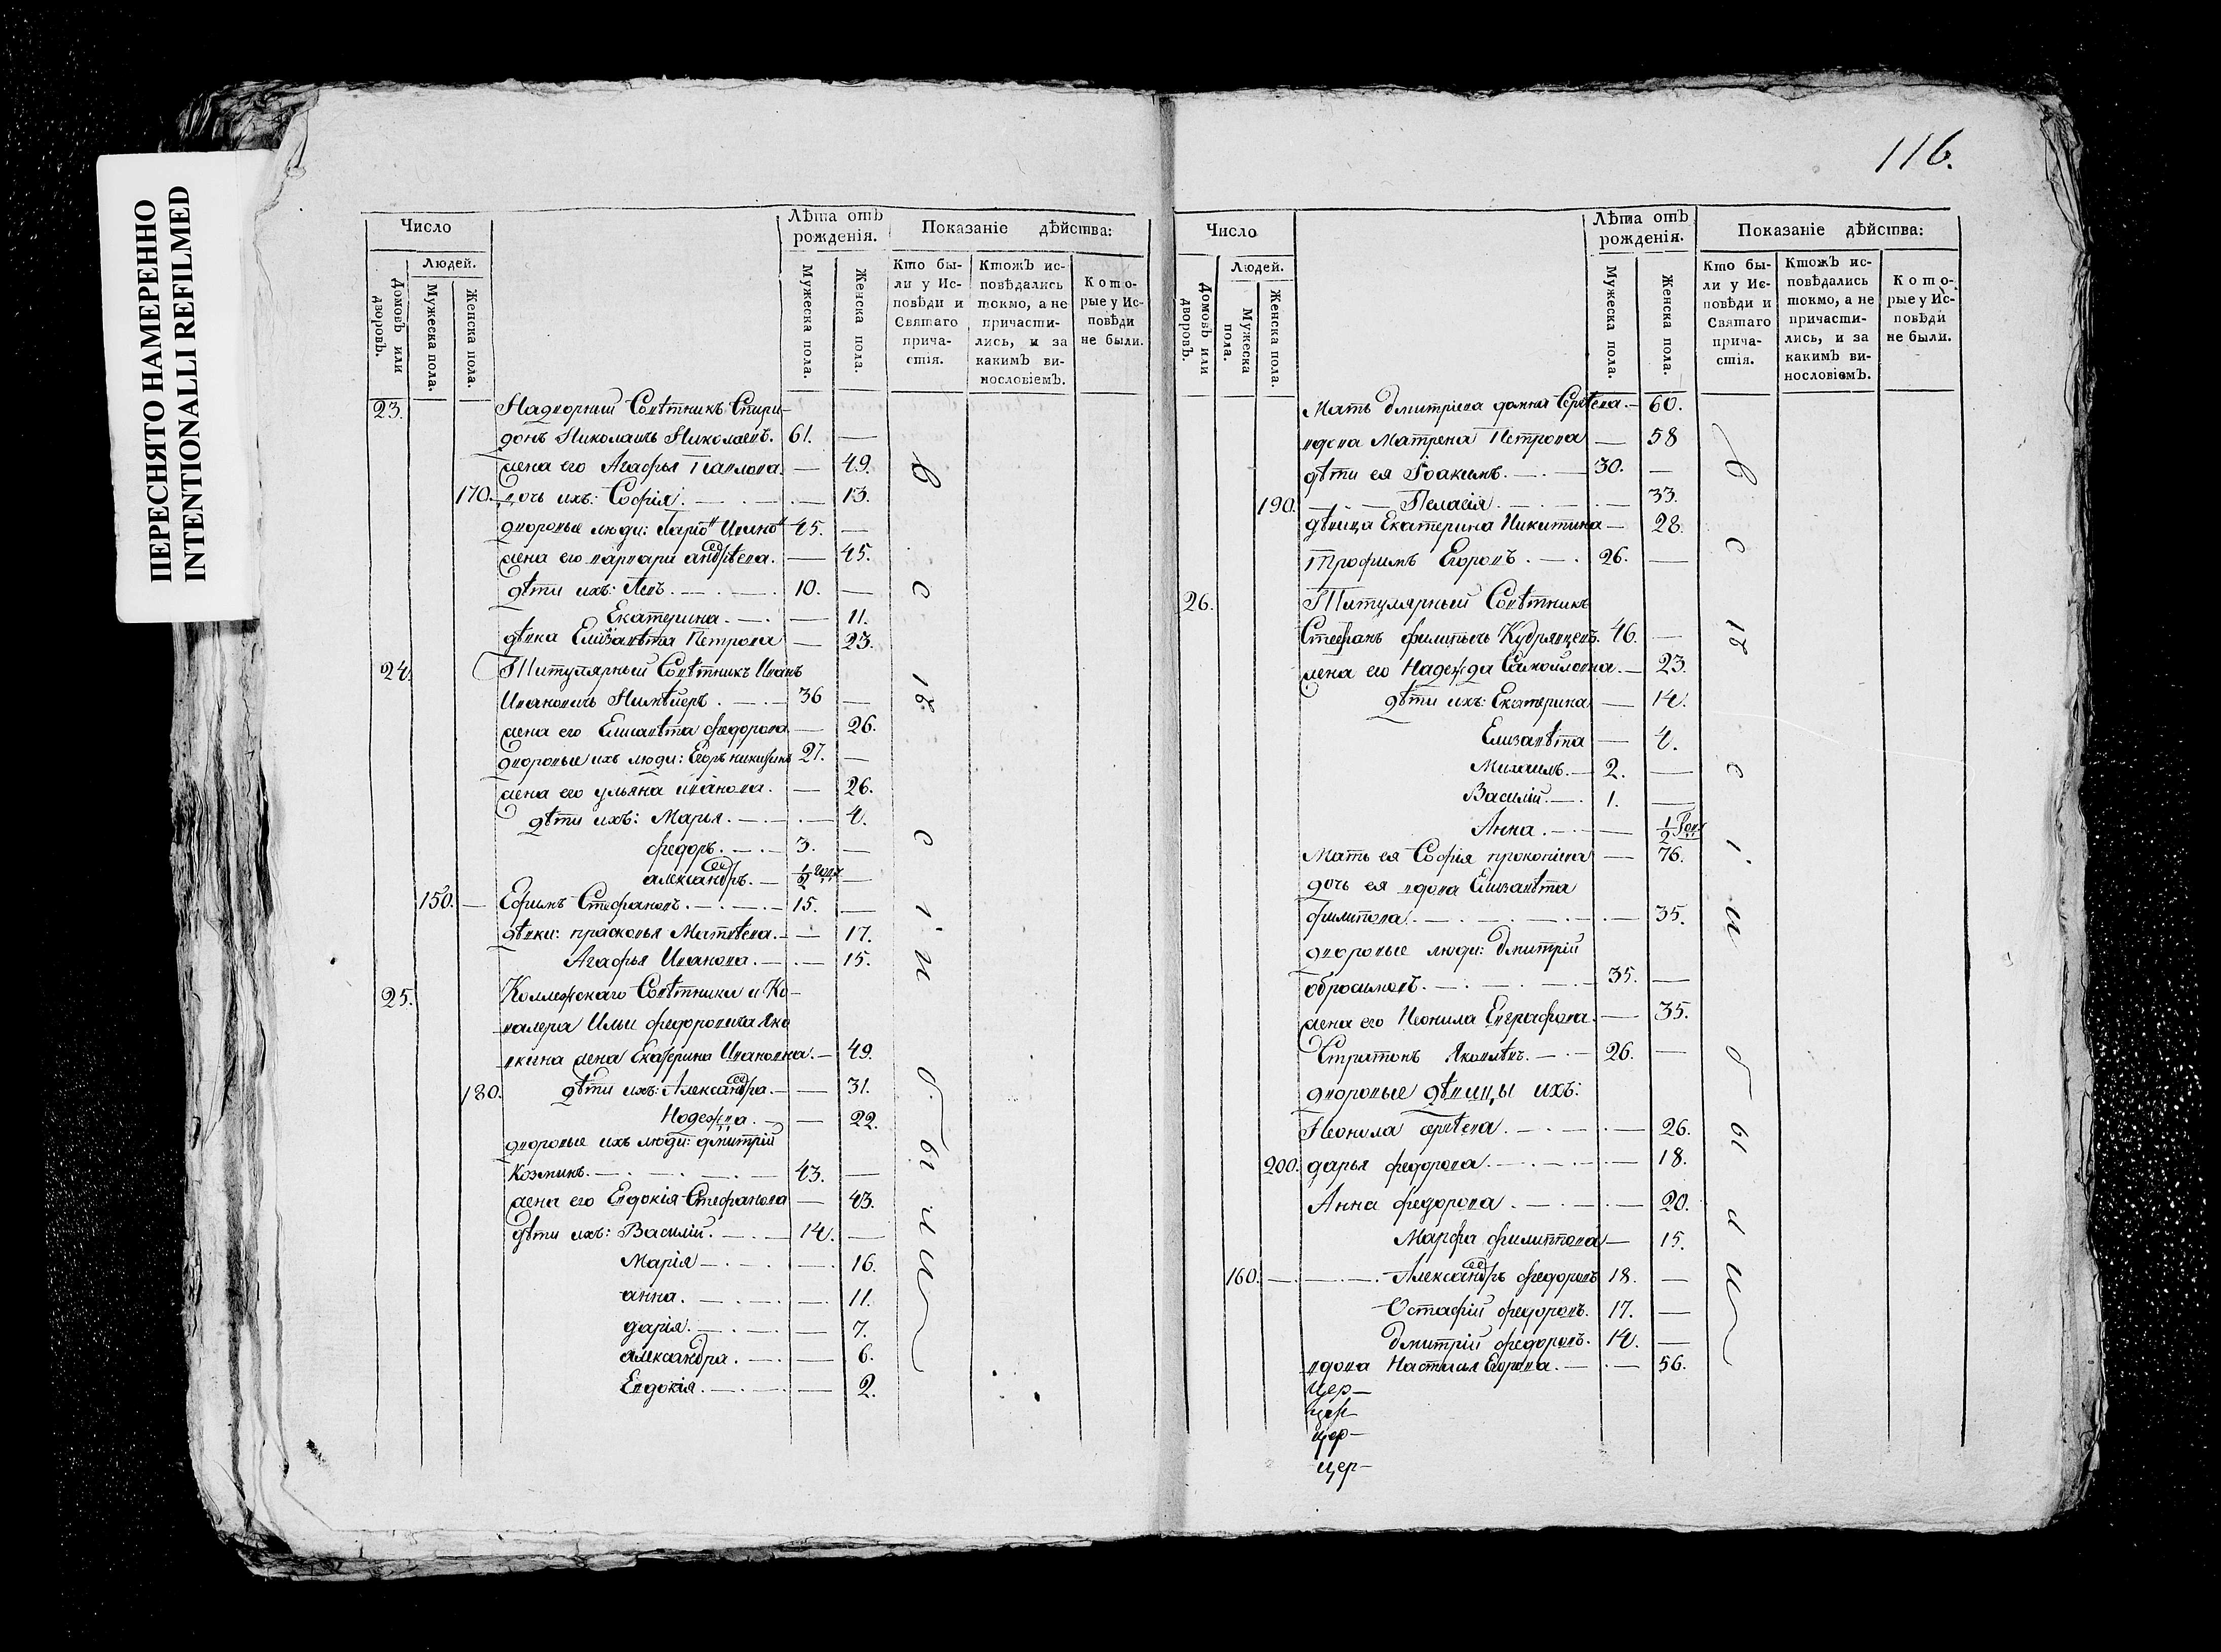 ПЕРЕСНЯТО НАМЕРЕННО
INTENTIONALLI REFILMED
Число
Людей.
Домовъ или дворовъ.
Мужеска пола.
Женска пола.
Лѣта отъ рожденія.
Мужеска пола.
Женска пола.
Показаніе дѣйства:
Кто были у Исповѣди и Святаго причастія.
Ктожъ исповѣдались токмо, а не причастились, и за какимъ винословіемъ.
Которые у Исповѣди не были.
23. Надворный Совѣтникъ Спири-
донъ Николаичь Николаевъ. 61. —
жена его Агафья Павлова. — 49.
170. дочь ихъ: Софія. — 13.
дворовые люди: 45. —
жена его варвара андреева. — 45.
дѣти ихъ: Левъ. 10. —
Екатерина. — 11.
дѣвка Елизавѣта Петрова — 23.
24. Титулярный Совѣтникъ Иванъ
Ивановичь 36 —
жена его Елисавѣта федорова — 26.
дворовые ихъ люди: Егоръ 27. —
жена его ульяна иванова. — 26.
дѣти ихъ: Марья. — 4.
федоръ. 3. —
александръ. 1/2 года —
150. — Ефимъ Стефановъ. 15. —
дѣвки: прасковья Матвѣева. — 17.
Агафья Иванова. — 15.
25. Коллежскаго Совѣтника и Ка-
валера Ильи федоровича Яко
вкина жена Екатерина Ивановна. — 49.
180. дѣти ихъ: Александра. — 31.
Надежда. — 22.
дворовые ихъ люди: дмитрій
Козминъ. 43. —
жена его Евдокія Стефанова — 43.
дѣти ихъ: Василій. 14. —
Марія — 16.
анна. — 11.
дарія. — 7.
александра. — 6.
Евдокія. — 2.
в с ѣ с і и б ы л и
116.
Число
Людей.
Домовъ или дворовъ.
Мужеска пола.
Женска пола.
Лѣта отъ рожденія.
Мужеска пола.
Женска пола.
Показаніе дѣйства:
Кто были у Исповѣди и Святаго причастія.
Ктожъ исповѣдались токмо, а не причастились, и за какимъ винословіемъ.
Которые у Исповѣди не были.
Мать дмитріева домна Сергѣева. — 60.
вдова Матрена Петрова — 58
дѣти ея Іоакимъ. 30. —
190. Пелагія. — 33.
дѣвица Екатерина Никитина — 28.
Трофимъ Егоровъ. 26. —
26. Титулярный Совѣтникъ
Стефанъ филипычь Кудрявцевъ. 46. —
жена его Надежда Самойловна. — 23.
дѣти ихъ: Екатерина — 14.
Елизавѣта — 4.
Михаилъ. 2. —
Василій. 1. —
Анна. — 1/2 года
Мать ея Софія прокопіева — 76.
дочь ея вдова Елизавѣта
филипова. — 35.
дворовые люди: дмитрій
обросимовъ. 35. —
жена его Неонила Евграфова. — 35.
Стратонъ Яковлевъ. 26. —
дворовые дѣвицы ихъ:
Неонила сергѣева. — 26.
200. дарья федорова. — 18.
Анна федорова. — 20.
Марфа филиппова — 15.
160. — Александръ федоровъ 18. —
Остафій федоровъ. 17. —
дмитрій федоровъ. 14. —
вдова Настасья Егорова. — 56.
цер—
цер—
цер—
цер—
в с ѣ с і и б ы л и